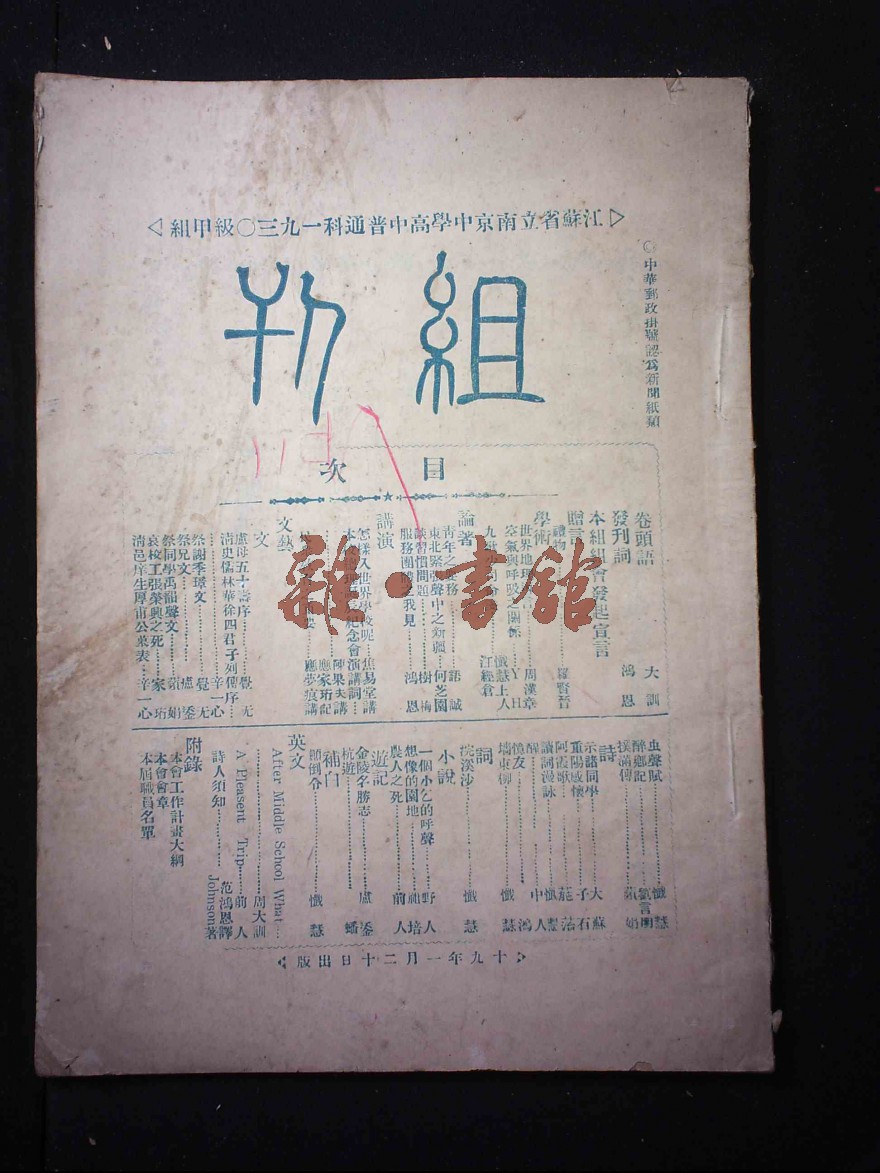 江蘇省立南京中學高中普通科一九三〇級甲組
◎中華郵政掛號認爲新聞紙類
組刊
目次
卷頭語 大訓
發刊詞 鴻恩
本組組會發起宣言
贈言
禮物 羅賢晉
學術
世界地理 周漢章
空氣與呼吸之關係 丫日
懺慧上人
江經倉
論著
青年 務 語誠
東北緊張聲中之新疆 何芝園
讀書習慣問題 樹梅
服務團 我見 鴻恩
講演
怎樣入世界學校呢 焦易堂講
紀念會演講詞 陳果夫講
應家珩記
應夢痕講
文藝
文
盧母五十壽序 覺无
清史儒林華徐四君子列傳序 辛一心
祭謝季環文 覺无
祭兄文 盧鋈
祭同學禹韻聲文 蘋娟
哀校工張榮興之死 家珩
清邑庠生厚甫公墓表 辛一心
虫聲賦 懺慧
醉鄉記
撲滿傳 蘋娟
詩
示諸同學 大蘇
重陽感懷 子石
阿霞歌
讀詞漫詠 懺慧
醒 中人
憶友 鴻
墻東柳 懺慧
詞
浣溪沙 懺慧
小說
一個小乞的呼聲 野人
想像的園地 培
農人之死 前人
遊記
金陵名勝志 盧鋈
杭遊 蟠
補白
顛倒令 懺慧
英文
After Middle School What
周大訓
A Pleasent Trip 前人
詩人須知 Johnson著
范鴻恩譯
附錄
本會工作計畫大綱
本會會章
本屆職員名單
十九年一月二十日出版
雜·書館